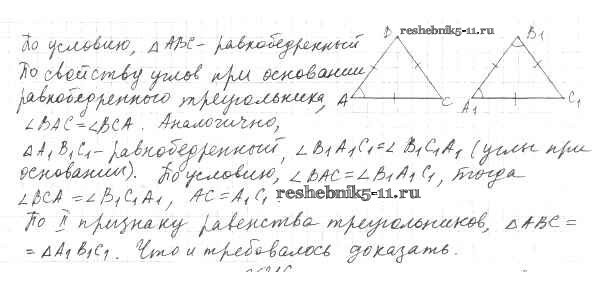 По условию, △ABC - равнобедренный
По свойству углов при основании
равнобедренного треугольника,
∠BAC=∠BCA. Аналогично,
△A1B1C1 - равнобедренный, ∠B1A1C1=∠B1C1A1 (углы при
основании). По условию, ∠BAC=∠B1A1C1, тогда
∠BCA=∠B1C1A1, AC=A1C1
По II признаку равенства треугольников, △ABC=
=△A1B1C1. Что и требовалось доказать.
B
reshebnik5-11.ru
B1
A
C
A1
C1
reshebnik5-11.ru